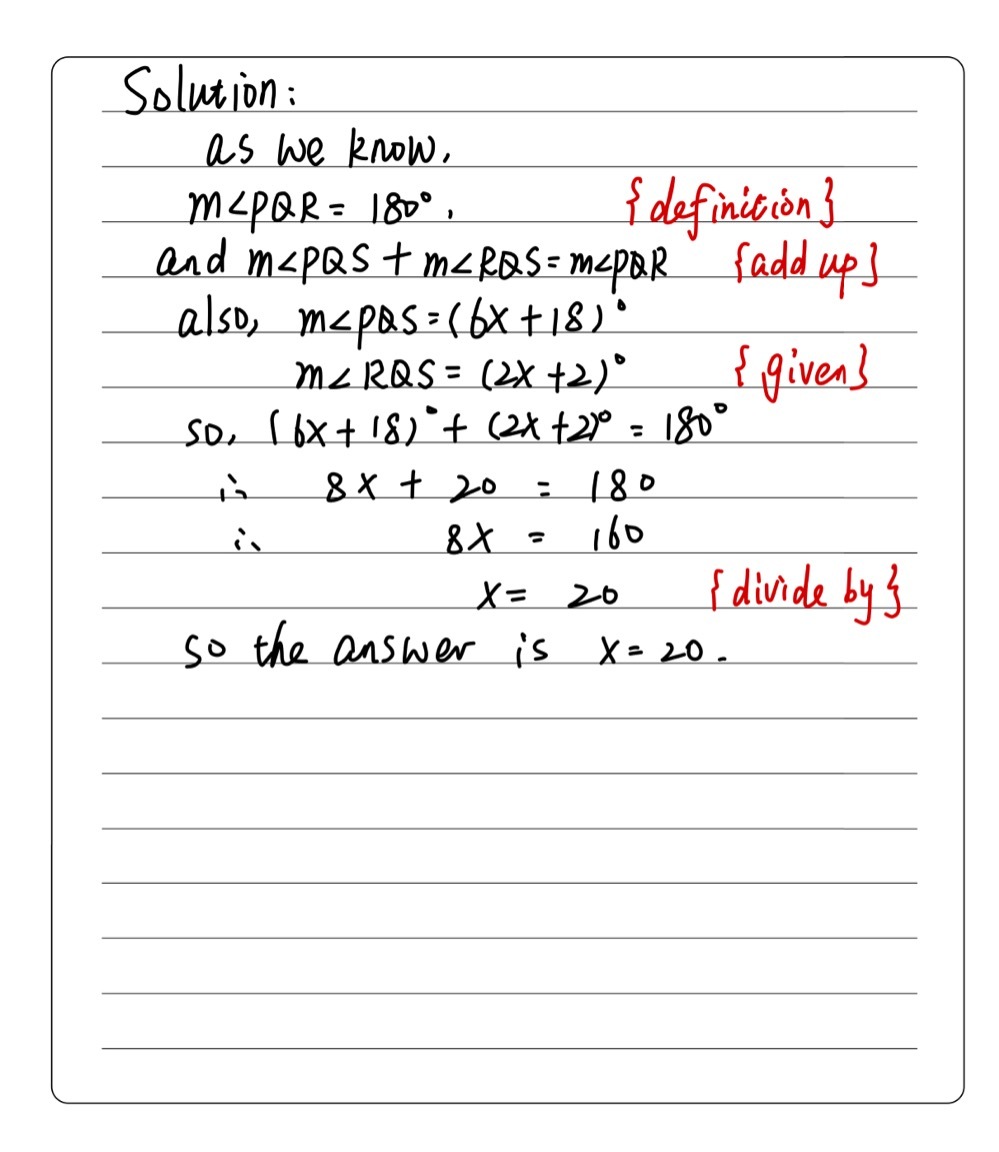 Solution:
as we know,
m∠PQR = 180°, {definition}
and m∠PQS + m∠RQS = m∠PQR {add up}
also, m∠PQS = (6x + 18)°
m∠RQS = (2x + 2)° {given}
so, (6x + 18)° + (2x + 2)° = 180°
∴ 8x + 20 = 180
∴ 8x = 160
x = 20 {divide by}
so the answer is x = 20.